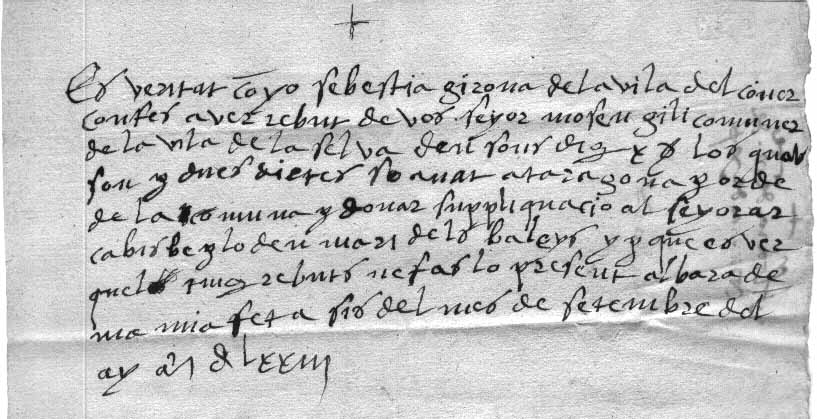 Es veritat co yo sebestia girona de la vila del
confes aver rebut de vos seyor mosen gili comuner
de la vila de la selva deu sous dig x s los quals
son p dues dietes so anat a taragona p orde
de la comuna p donar suppliquacio al seyor ar
cabisbe p lo den mari dels baleys y p que es ver
quels ting rebuts ne fas lo present albara de
ma mia fet a sis del mes de setembre del
ay M D lxxiii